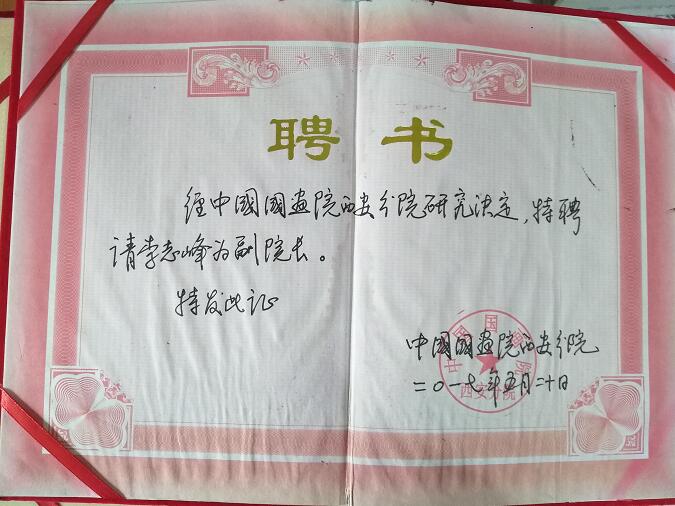 聘书
经中國國画院西安分院研究决定,特聘
请李志峰为副院长。
特发此证
中國國画院西安分院
二〇一七年五月二十日
中国国画院
西安分院